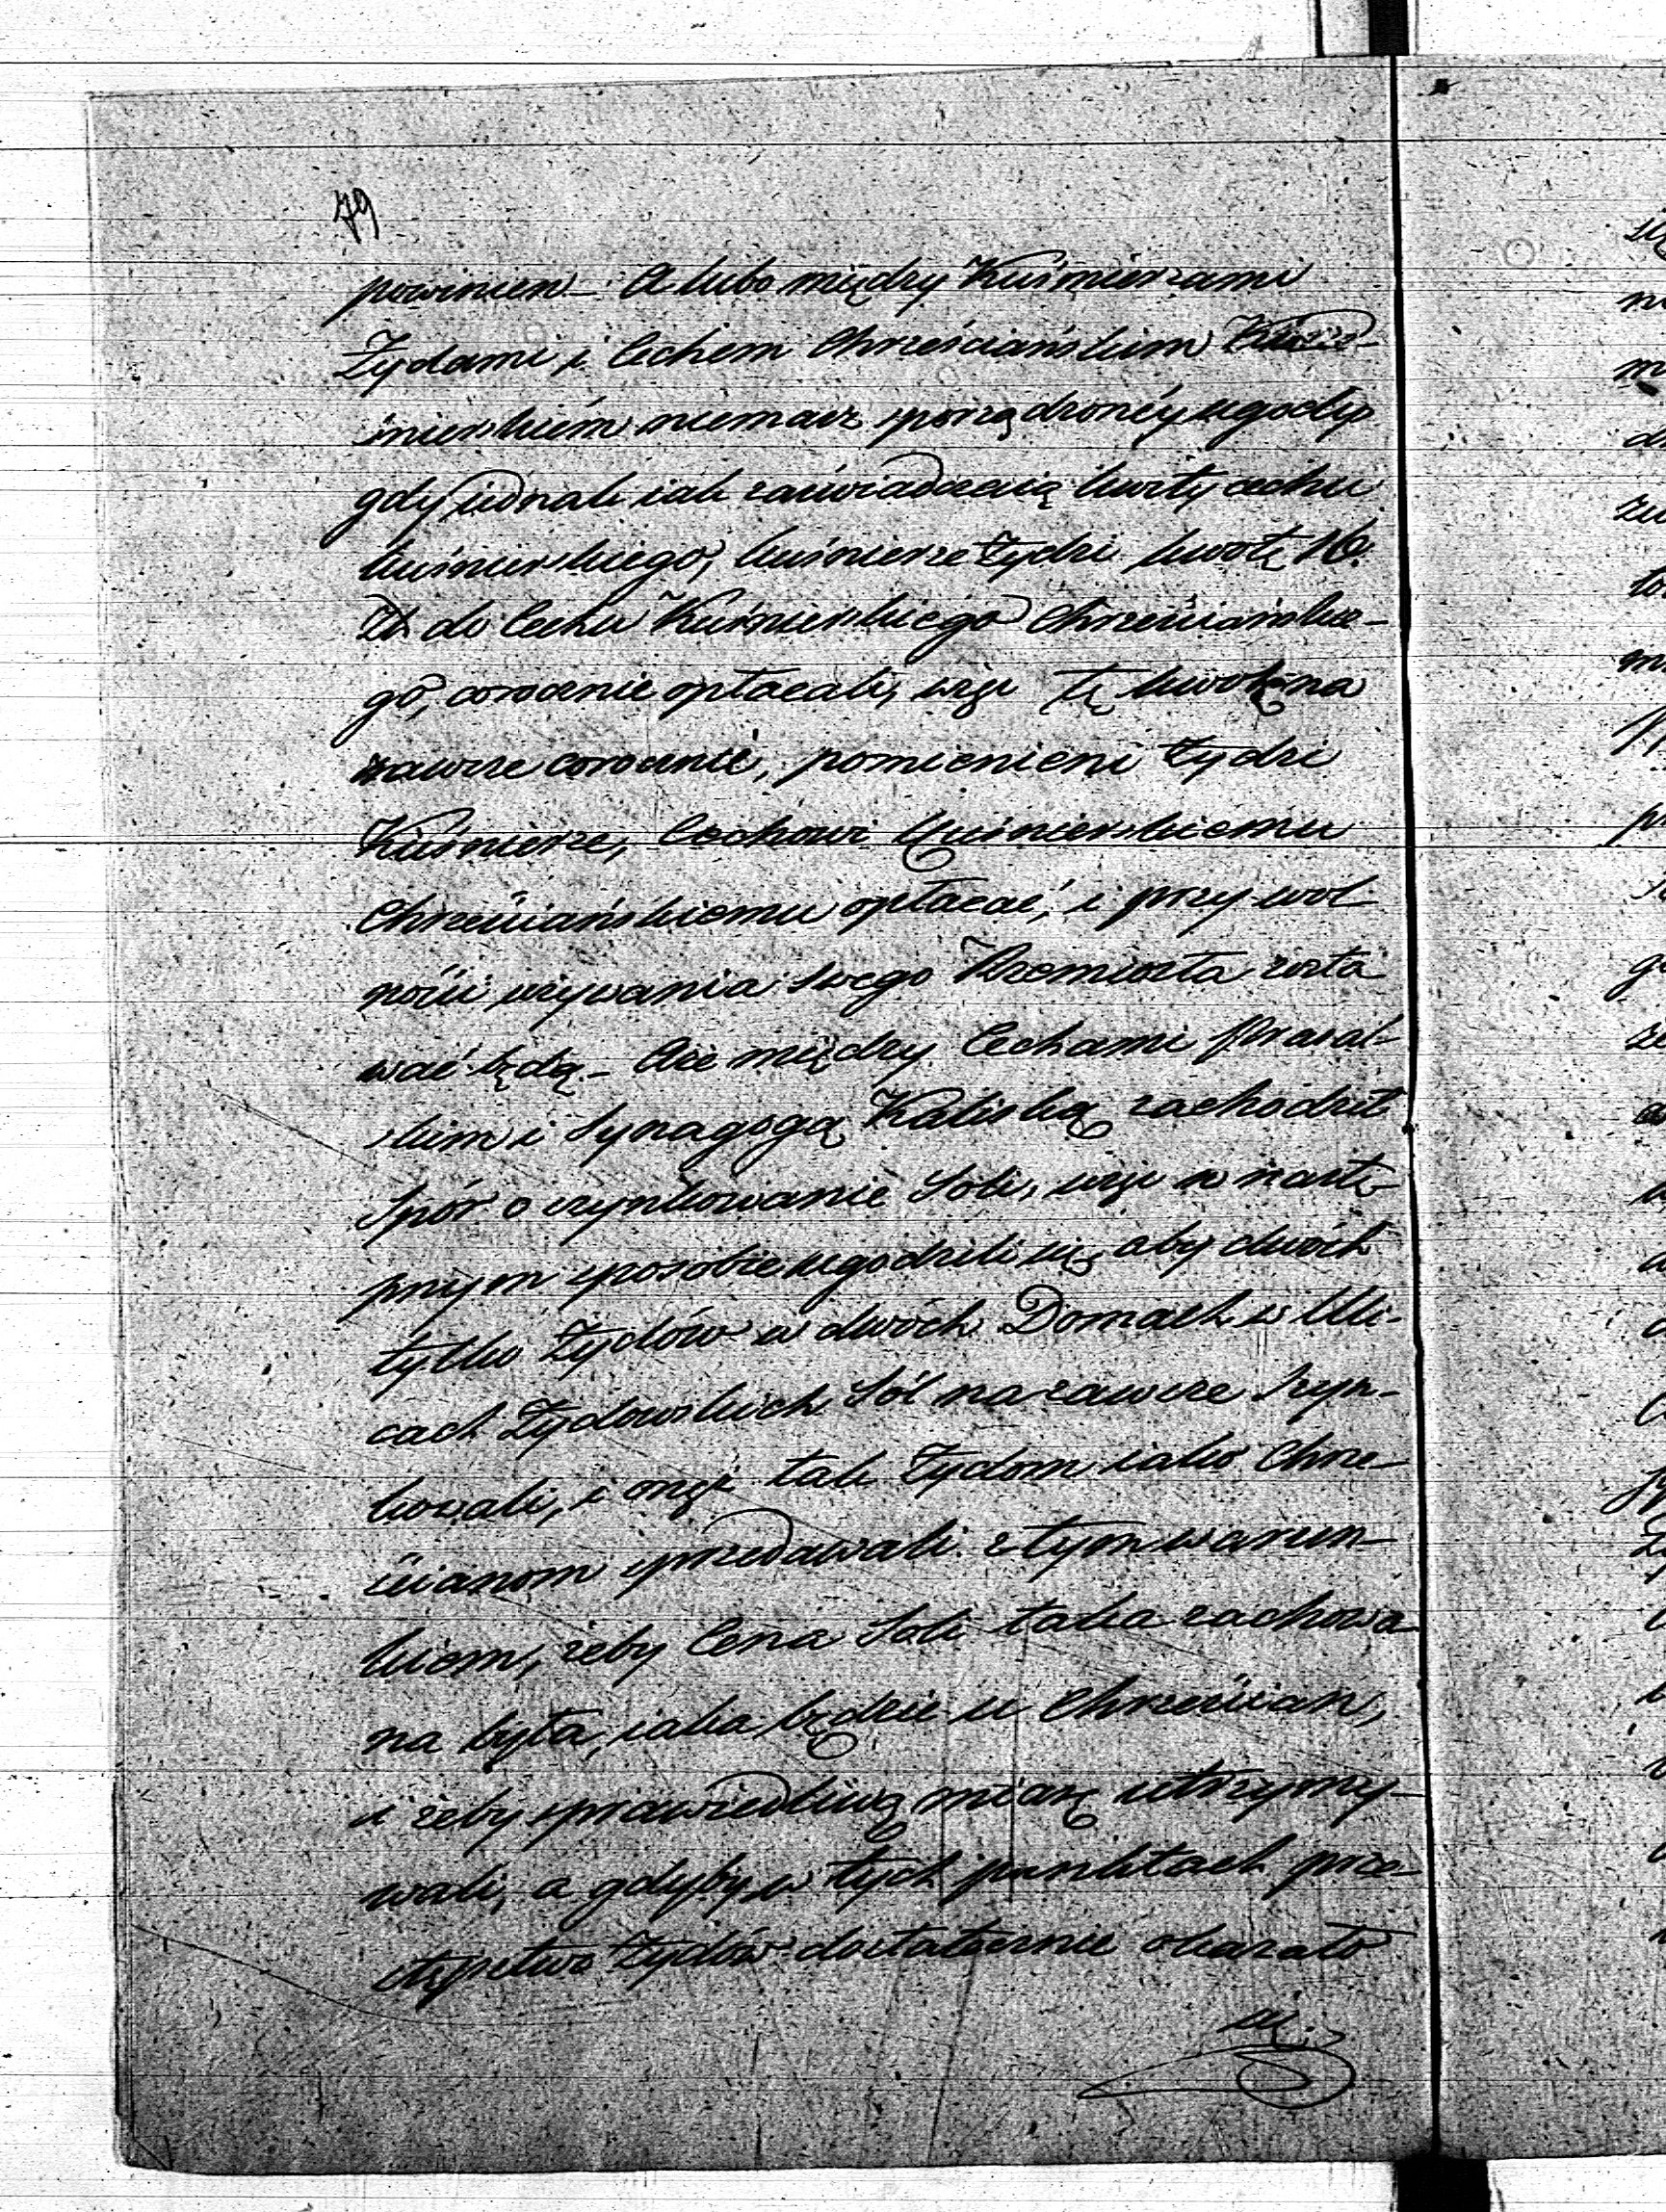 79
powinien – A lubo między Kuśmierzami
Żydami i Cechem Chrześciańskim
śnierskiém niemasz sporządzonéy ugody
gdy jednak iak zaświadczaią kwity cechu
kuśnierskiego, kuśnierze Żydzi kwotę 16.
Zł do Cechu Kuśnierskiego Chrześciańskie-
go, corocznie opłacali, więc tę kwotę na
zawsze corocznie, pomienieni Żydzi
Kuśnierze, Cechowi Kuśnierskiemu
Chrześciańskiemu opłacać, i przy wol
ności używania swego Rzemiosła zosta
wać będą – Ale między Cechami Prasol-
skim i Synagogą Kaliską zachodził
Spór o szynkowanie Soli, więc w nastę-
pnym sposobie ugodzili się, aby dwóch
tylko Żydów w dwóch Domach w Uli-
cach Żydowskich Sól na zawsze Szyn-
kowali, i onęż tak Żydom iako Chrze-
ścianom sprzedawali z tym warun-
kiem, żeby Cena Soli taka zachowa-
na była, iaka będzie u Chrześcian,
i żeby sprawiedliwą miarę utrzymy-
wali, a gdyby w tych punktach prze-
stępstwo Żydów dostatecznie okazało
się